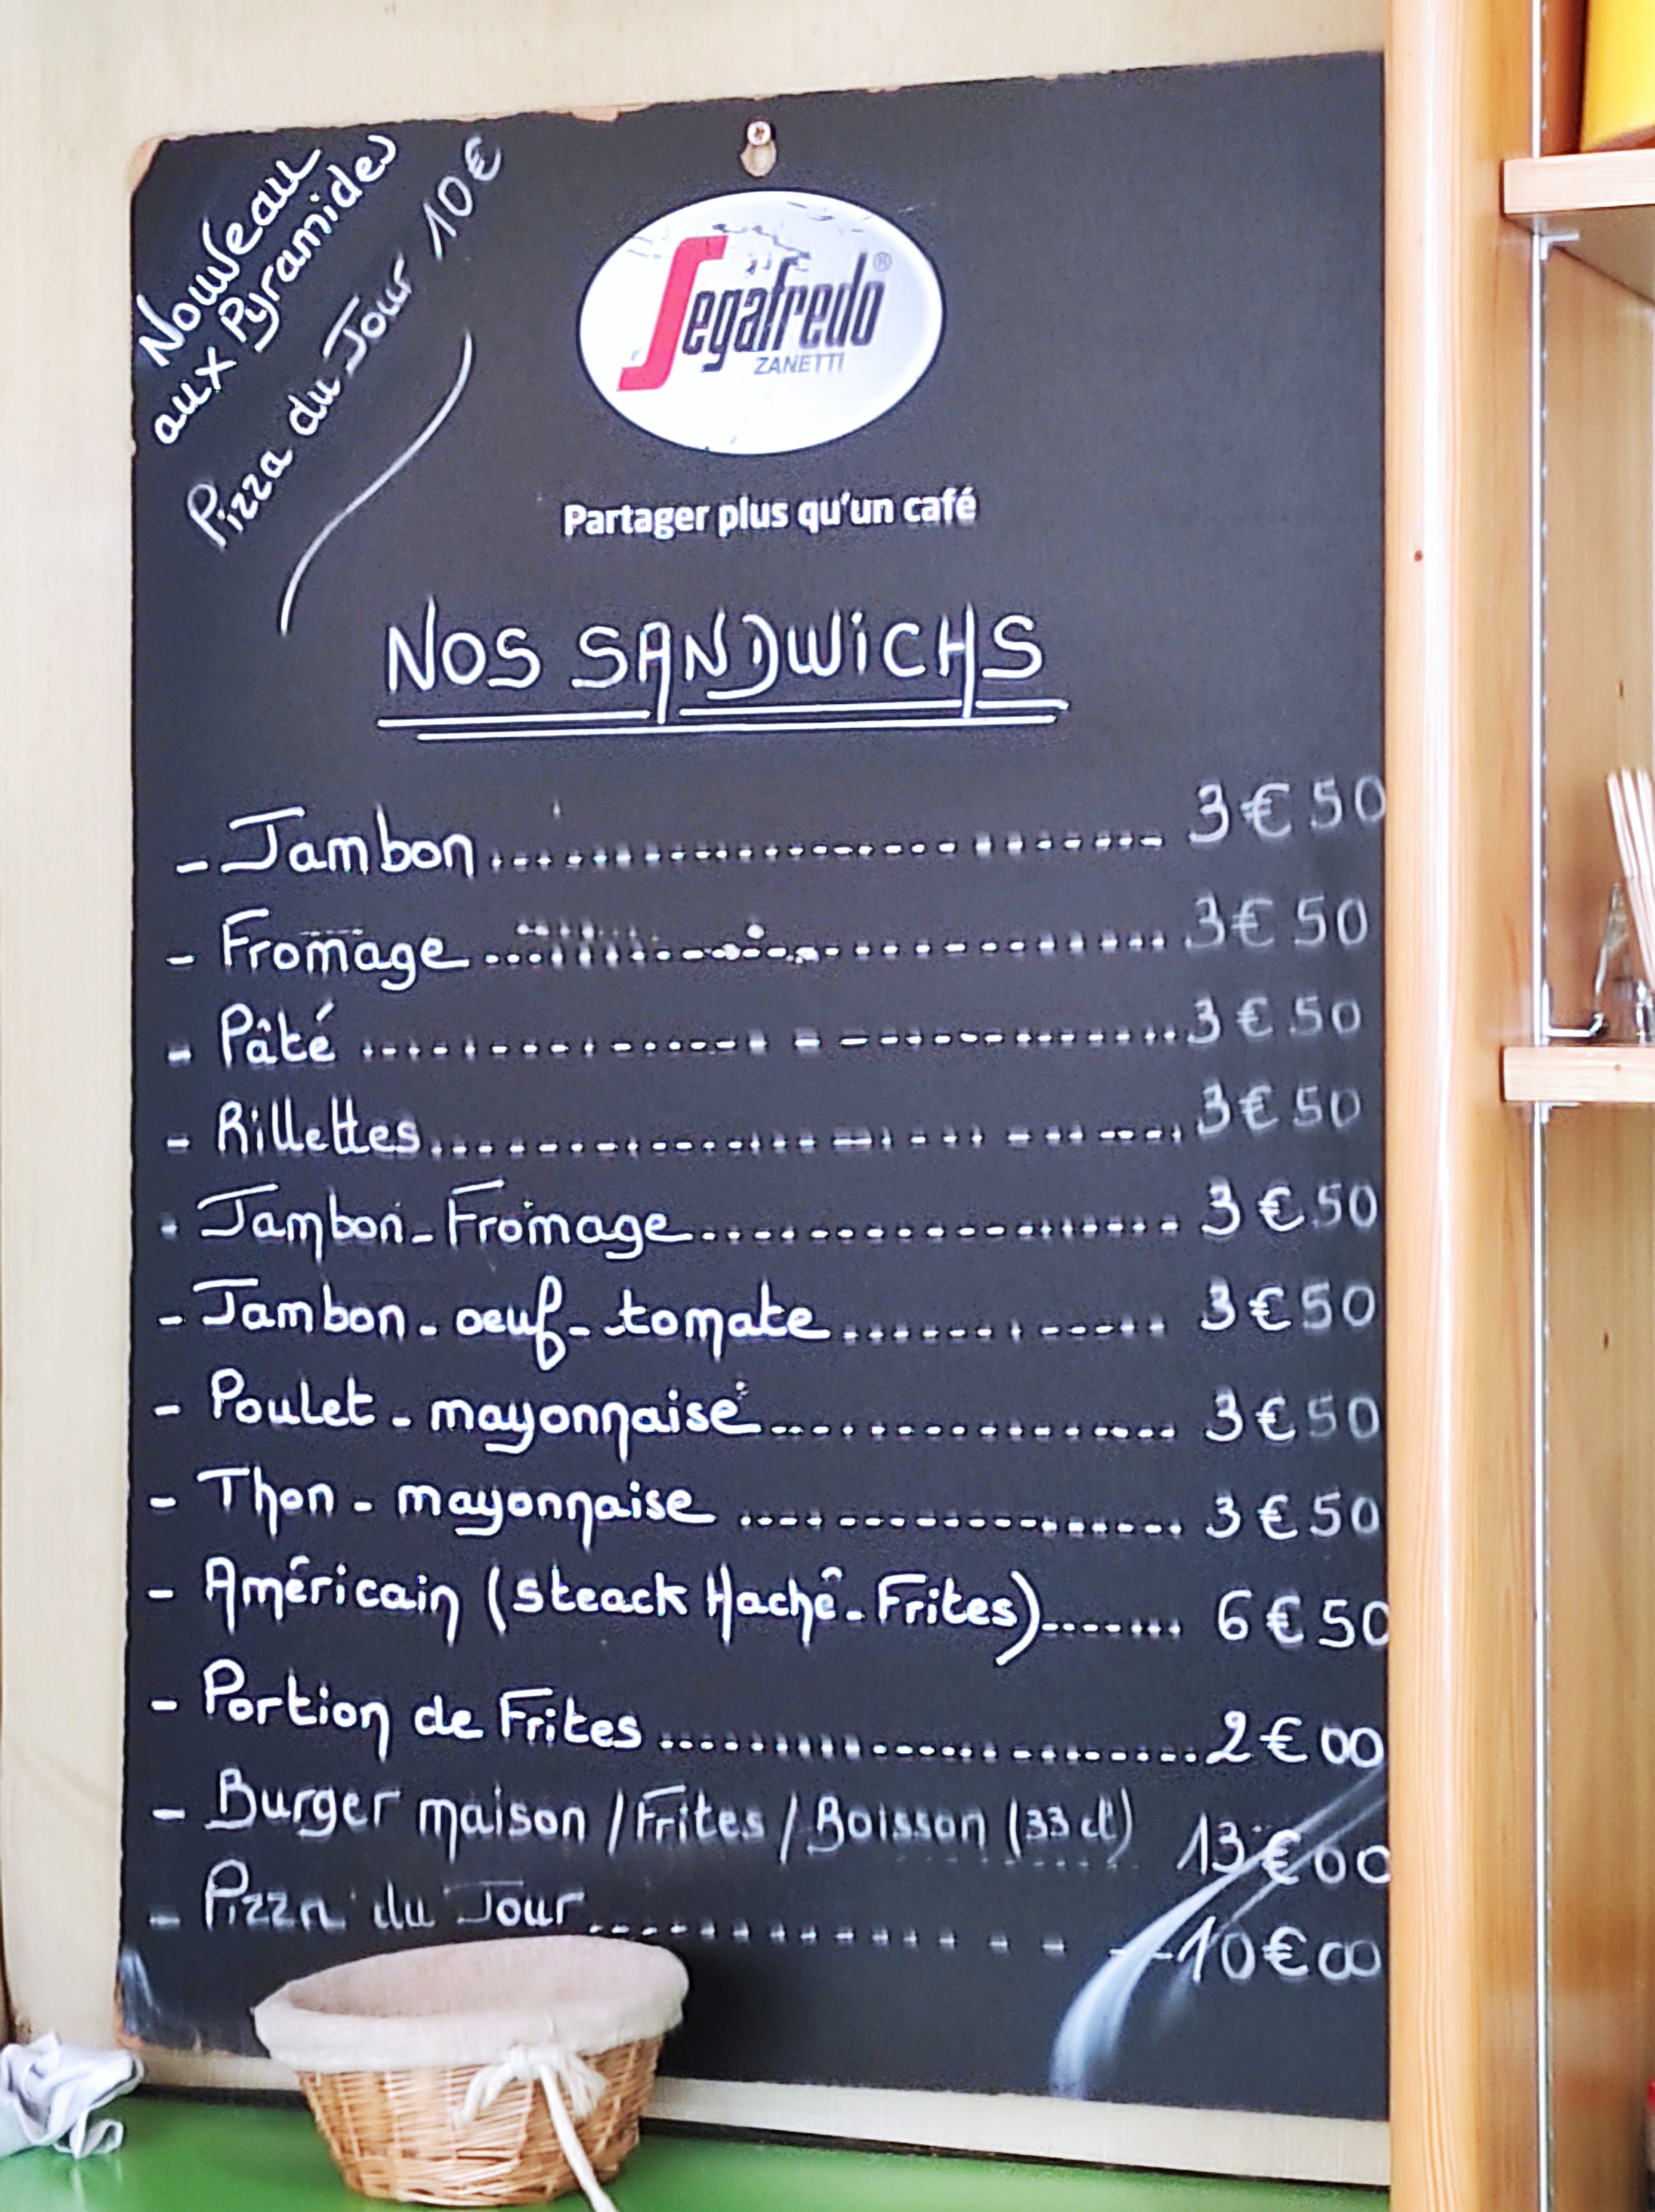 Nouveau
aux Pyramides
Pizza du Jour 10€
Segafredo®
ZANETTI
Partager plus qu'un café
NOS SANDWiCHS
- Jambon................................ 3€50
- Fromage................................ 3€50
- Pâté ................................ 3€50
- Rillettes................................ 3€50
- Jambon-Fromage........................ 3€50
- Jambon-oeuf-tomate................ 3€50
- Poulet-mayonnaise................ 3€50
- Thon-mayonnaise ................ 3€50
- Américain (steack Haché-Frites)....... 6€50
- Portion de Frites ........................ 2€00
- Burger maison /Frites / Boisson (33 cl) ....... 13€00
- Pizza du Jour................ 10€00